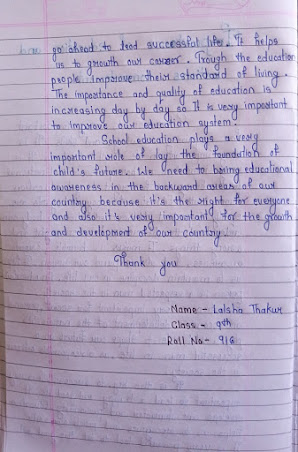 go ahead to lead successful life. It helps
us to growth our career. Trough the education
people improve their standard of living.
The importance and quality of education is
increasing day by day so It is very important
to improve our education system.
School education plays a very
important role of lay the foundation of
child's future. We need to bring educational
awareness in the backward areas of our
country because it's the right for everyone
and also it's very important for the growth
and development of our country
Thank you
Name - Laisha Thakur
Class - 9th
Roll No - 916